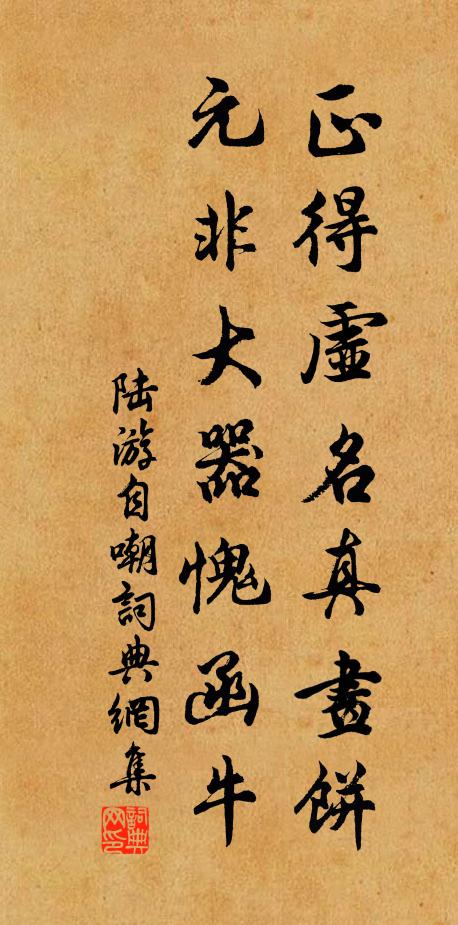 正得虛名真畫餅
元非大器愧函牛
陆游自嘲詞典網集
詞典网印